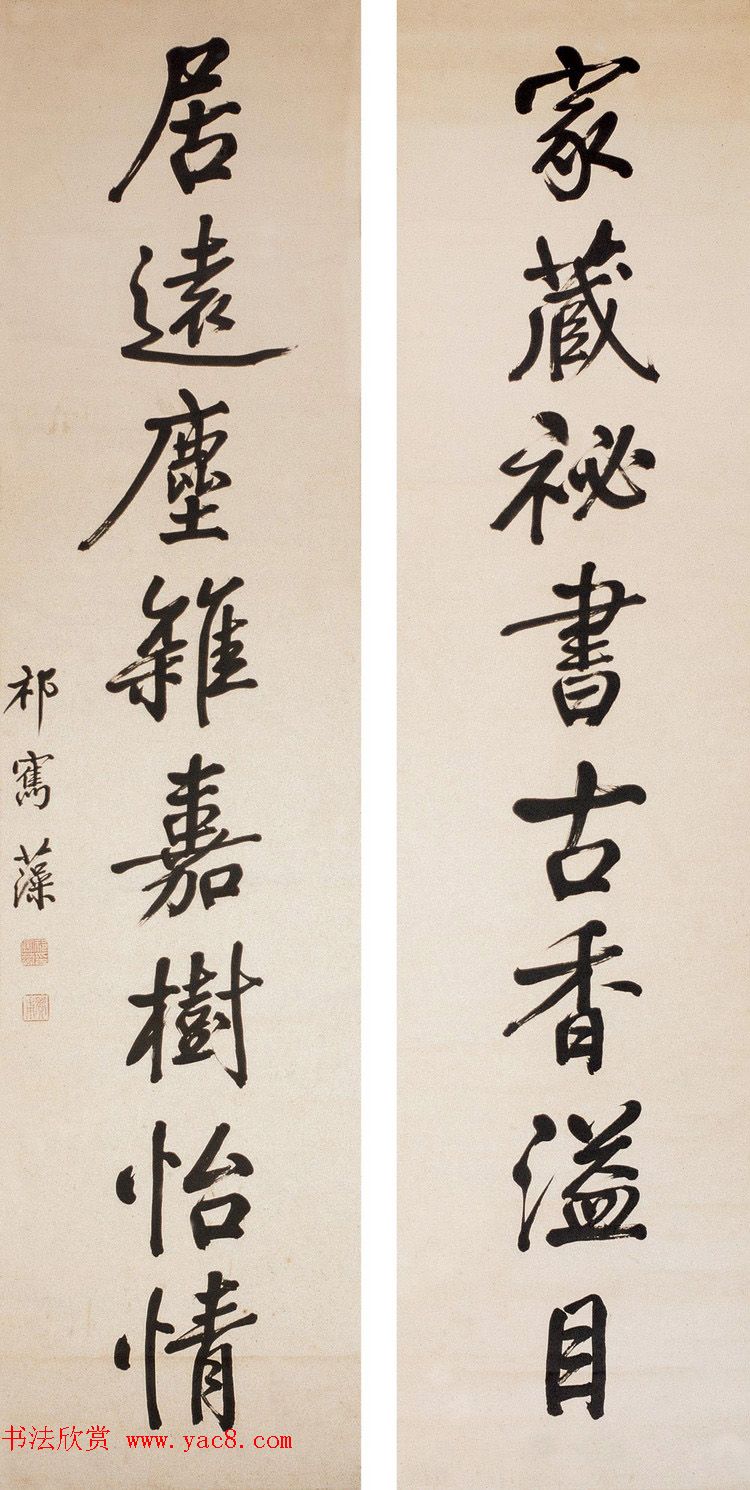 家藏祕書古香溢目
居遠塵雜嘉樹怡情
祁寯藻
书法欣赏 www.yac8.com